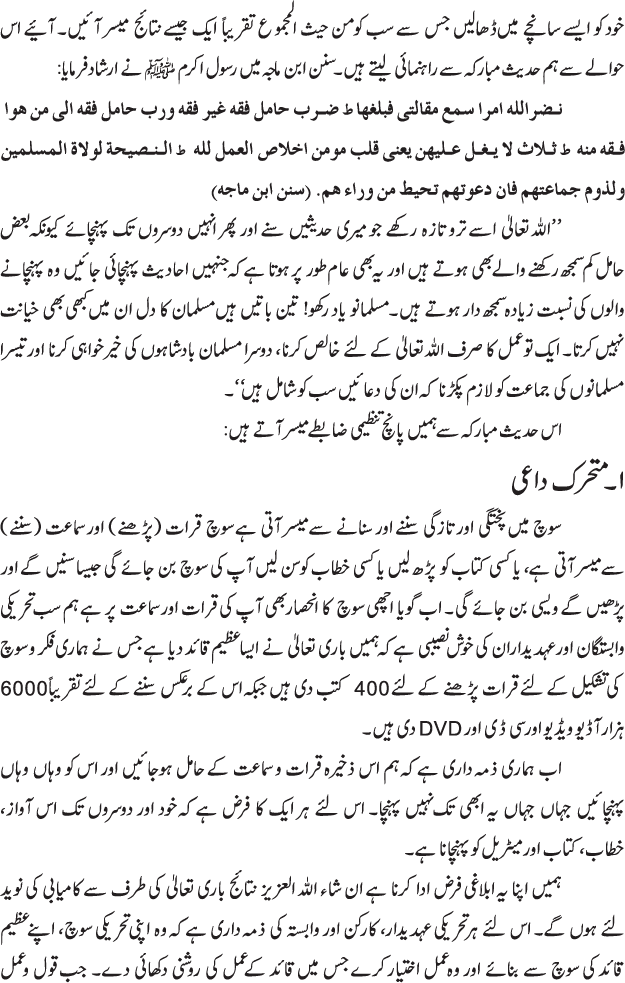 خود کو ایسے سانچے میں ڈھالیں جس سے سب کو من حیث المجموع تقریباً ایک جیسے نتائج میسر آئیں۔ آیئے اس
حوالے سے ہم حدیث مبارکہ سے راہنمائی لیتے ہیں۔ سنن ابن ماجہ میں رسول اکرم ﷺ نے ارشاد فرمایا:
نضر الله امرا سمع مقالتى فبلغها ط ضرب حامل فقه غير فقه ورب حامل فقه الى من هوا
فقه منه ط ثلاث لا يغل عليهن يعنى قلب مومن اخلاص العمل لله ط النصيحة لولاة المسلمين
ولذوم جماعتهم فان دعوتهم تحيط من وراء هم. (سنن ابن ماجه)
’’اللہ تعالیٰ اسے تروتازہ رکھے جو میری حدیثیں سنے اور پھر انہیں دوسروں تک پہنچائے کیونکہ بعض
حامل کم سمجھ رکھنے والے بھی ہوتے ہیں اور یہ بھی عام طور پر ہوتا ہے کہ جنہیں احادیث پہنچائی جائیں وہ پہنچانے
والوں کی نسبت زیادہ سمجھ دار ہوتے ہیں۔ مسلمانو یاد رکھو! تین باتیں ہیں مسلمان کا دل ان میں کبھی بھی خیانت
نہیں کرتا۔ ایک تو عمل کا صرف اللہ تعالیٰ کے لئے خالص کرنا، دوسرا مسلمان بادشاہوں کی خیر خواہی کرنا اور تیسرا
مسلمانوں کی جماعت کو لازم پکڑنا کہ ان کی دعائیں سب کو شامل ہیں‘‘۔
اس حدیث مبارکہ سے ہمیں پانچ تنظیمی ضابطے میسر آتے ہیں:
۱۔ متحرک داعی
سوچ میں پختگی اور تازگی سننے اور سنانے سے میسر آتی ہے سوچ قرات (پڑھنے) اور سماعت (سننے)
سے میسر آتی ہے، یا کسی کتاب کو پڑھ لیں یا کسی خطاب کو سن لیں آپ کی سوچ بن جائے گی جیسا سنیں گے اور
پڑھیں گے ویسی بن جائے گی۔ اب گویا اچھی سوچ کا انحصار بھی آپ کی قرات اور سماعت پر ہے ہم سب تحریکی
وابستگان اور عہدیداران کی خوش نصیبی ہے کہ ہمیں باری تعالیٰ نے ایسا عظیم قائد دیا ہے جس نے ہماری فکر و سوچ
کی تشکیل کے لئے قرات پڑھنے کے لئے 400 کتب دی ہیں جبکہ اس کے برعکس سننے کے لئے تقریباً 6000
ہزار آڈیو ویڈیو اور سی ڈی اور DVD دی ہیں۔
اب ہماری ذمہ داری ہے کہ ہم اس ذخیرہ قرات و سماعت کے حامل ہو جائیں اور اس کو وہاں وہاں
پہنچائیں جہاں جہاں یہ ابھی تک نہیں پہنچا۔ اس لئے ہر ایک کا فرض ہے کہ خود اور دوسروں تک اس آواز،
خطاب، کتاب اور میٹریل کو پہنچانا ہے۔
ہمیں اپنا یہ ابلاغی فرض ادا کرنا ہے ان شاء اللہ العزیز نتائج باری تعالیٰ کی طرف سے کامیابی کی نوید
لئے ہوں گے۔ اس لئے ہر تحریکی عہدیدار، کارکن اور وابستہ کی ذمہ داری ہے کہ وہ اپنی تحریکی سوچ، اپنے عظیم
قائد کی سوچ سے بنائے اور وہ عمل اختیار کرے جس میں قائد کے عمل کی روشنی دکھائی دے۔ جب قول و عمل